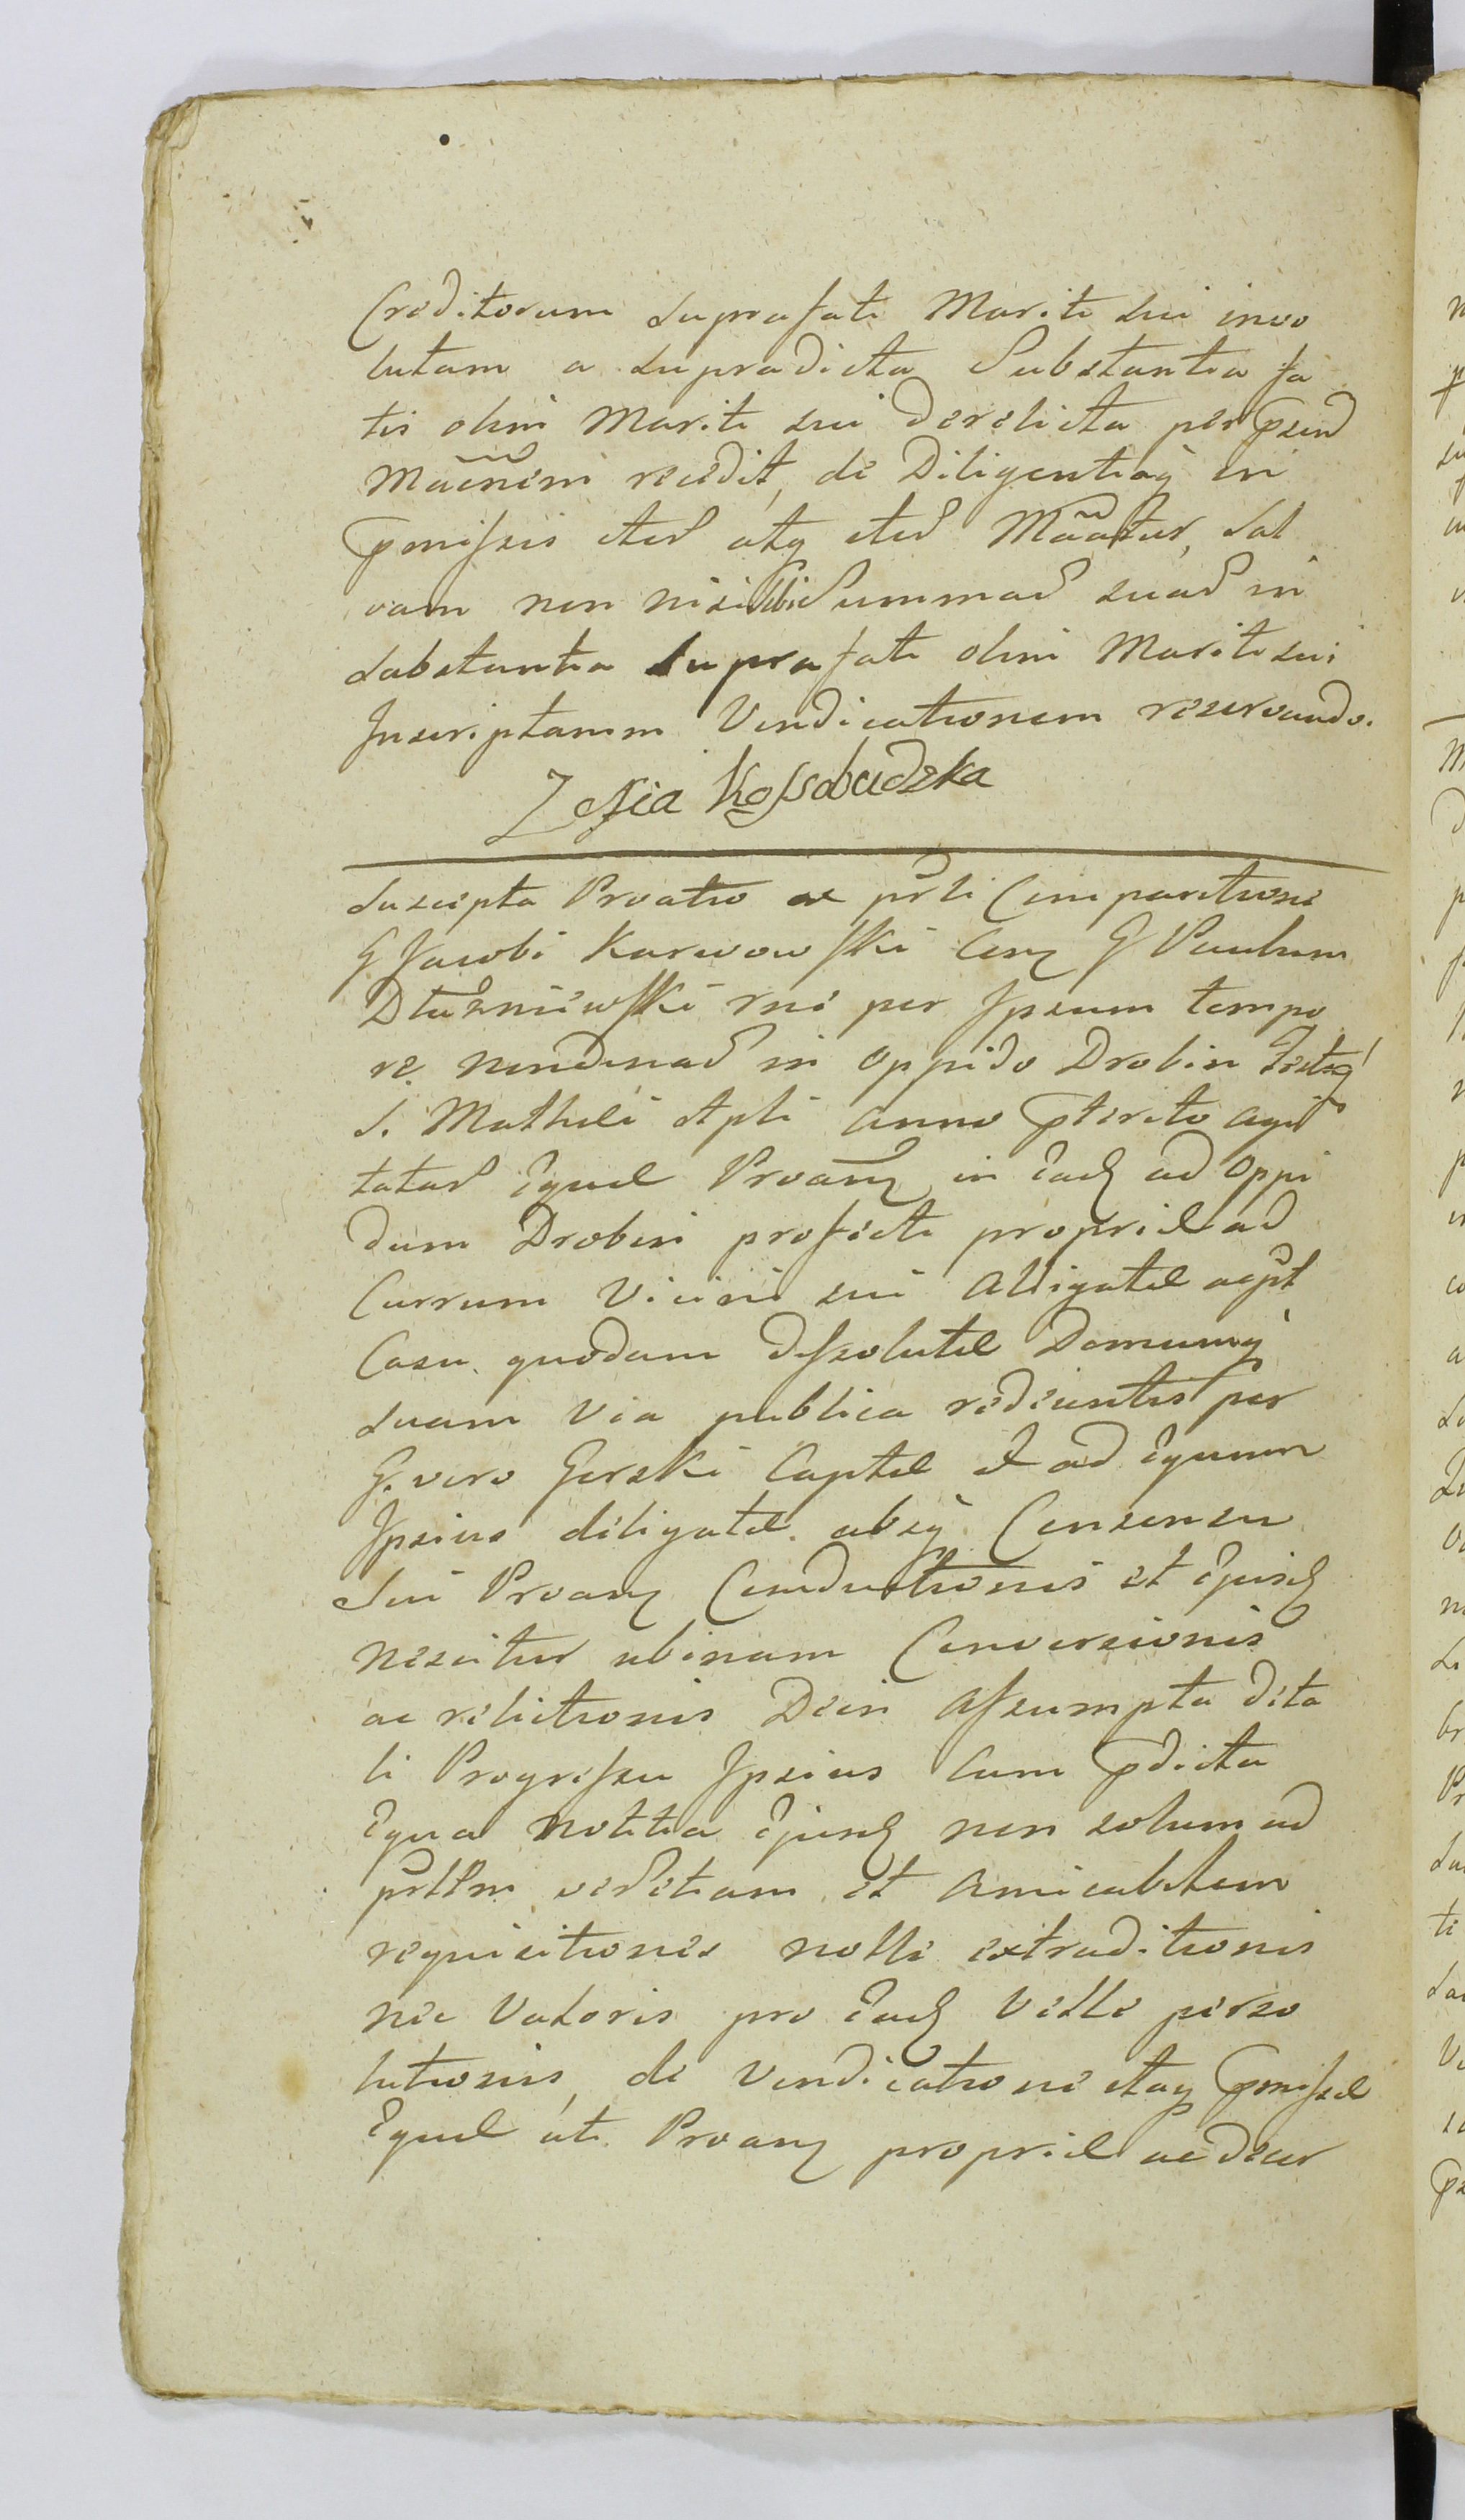 Creditorum suprafati Mariti sui invo
lutam a supradicta Substantia fa
tis olim Mariti sui derelicta per
recedit, de Diligentiaq in
pmissis atq Sal
vam non nisi sibi Summae suae in
substantia suprafati olim Mariti sui
Inscriptarum Vendicationem reservando.
Zofia Kossobudzka
Suscepta Proatio ex prli Comparitione
G Jacobi Karwowski Cons G Paulum
Dłużniewski rne per Ipsum tempo
re nundinar in Oppido Drobin
S. Mathei Apli anno pterito agi
tatar Equae Proans in ead ad Oppi
dum Drobin profecti propriae ad
Currum Vicini sui Alligatae
Casu quodam dissolutae Domumq
suam via publica redeuntis per
G. vero Gorski Captae et ad Equum
Ipsius deligatae absq Consensu
Sui Proans Conductionis et Ejusd
nescitur ubinam Conversionis
ac relictionis Dein Assumpta
li Progressu Ipsius cum pdicta
Equa notitia Ejusd non solum ad
prllem et amicabilem
requisitiones nolle extraditionis
nec Valoris pro ead Velle perso
lutionis, de Vendicatione itaq pmissae
Equae uti Proans propriae ac